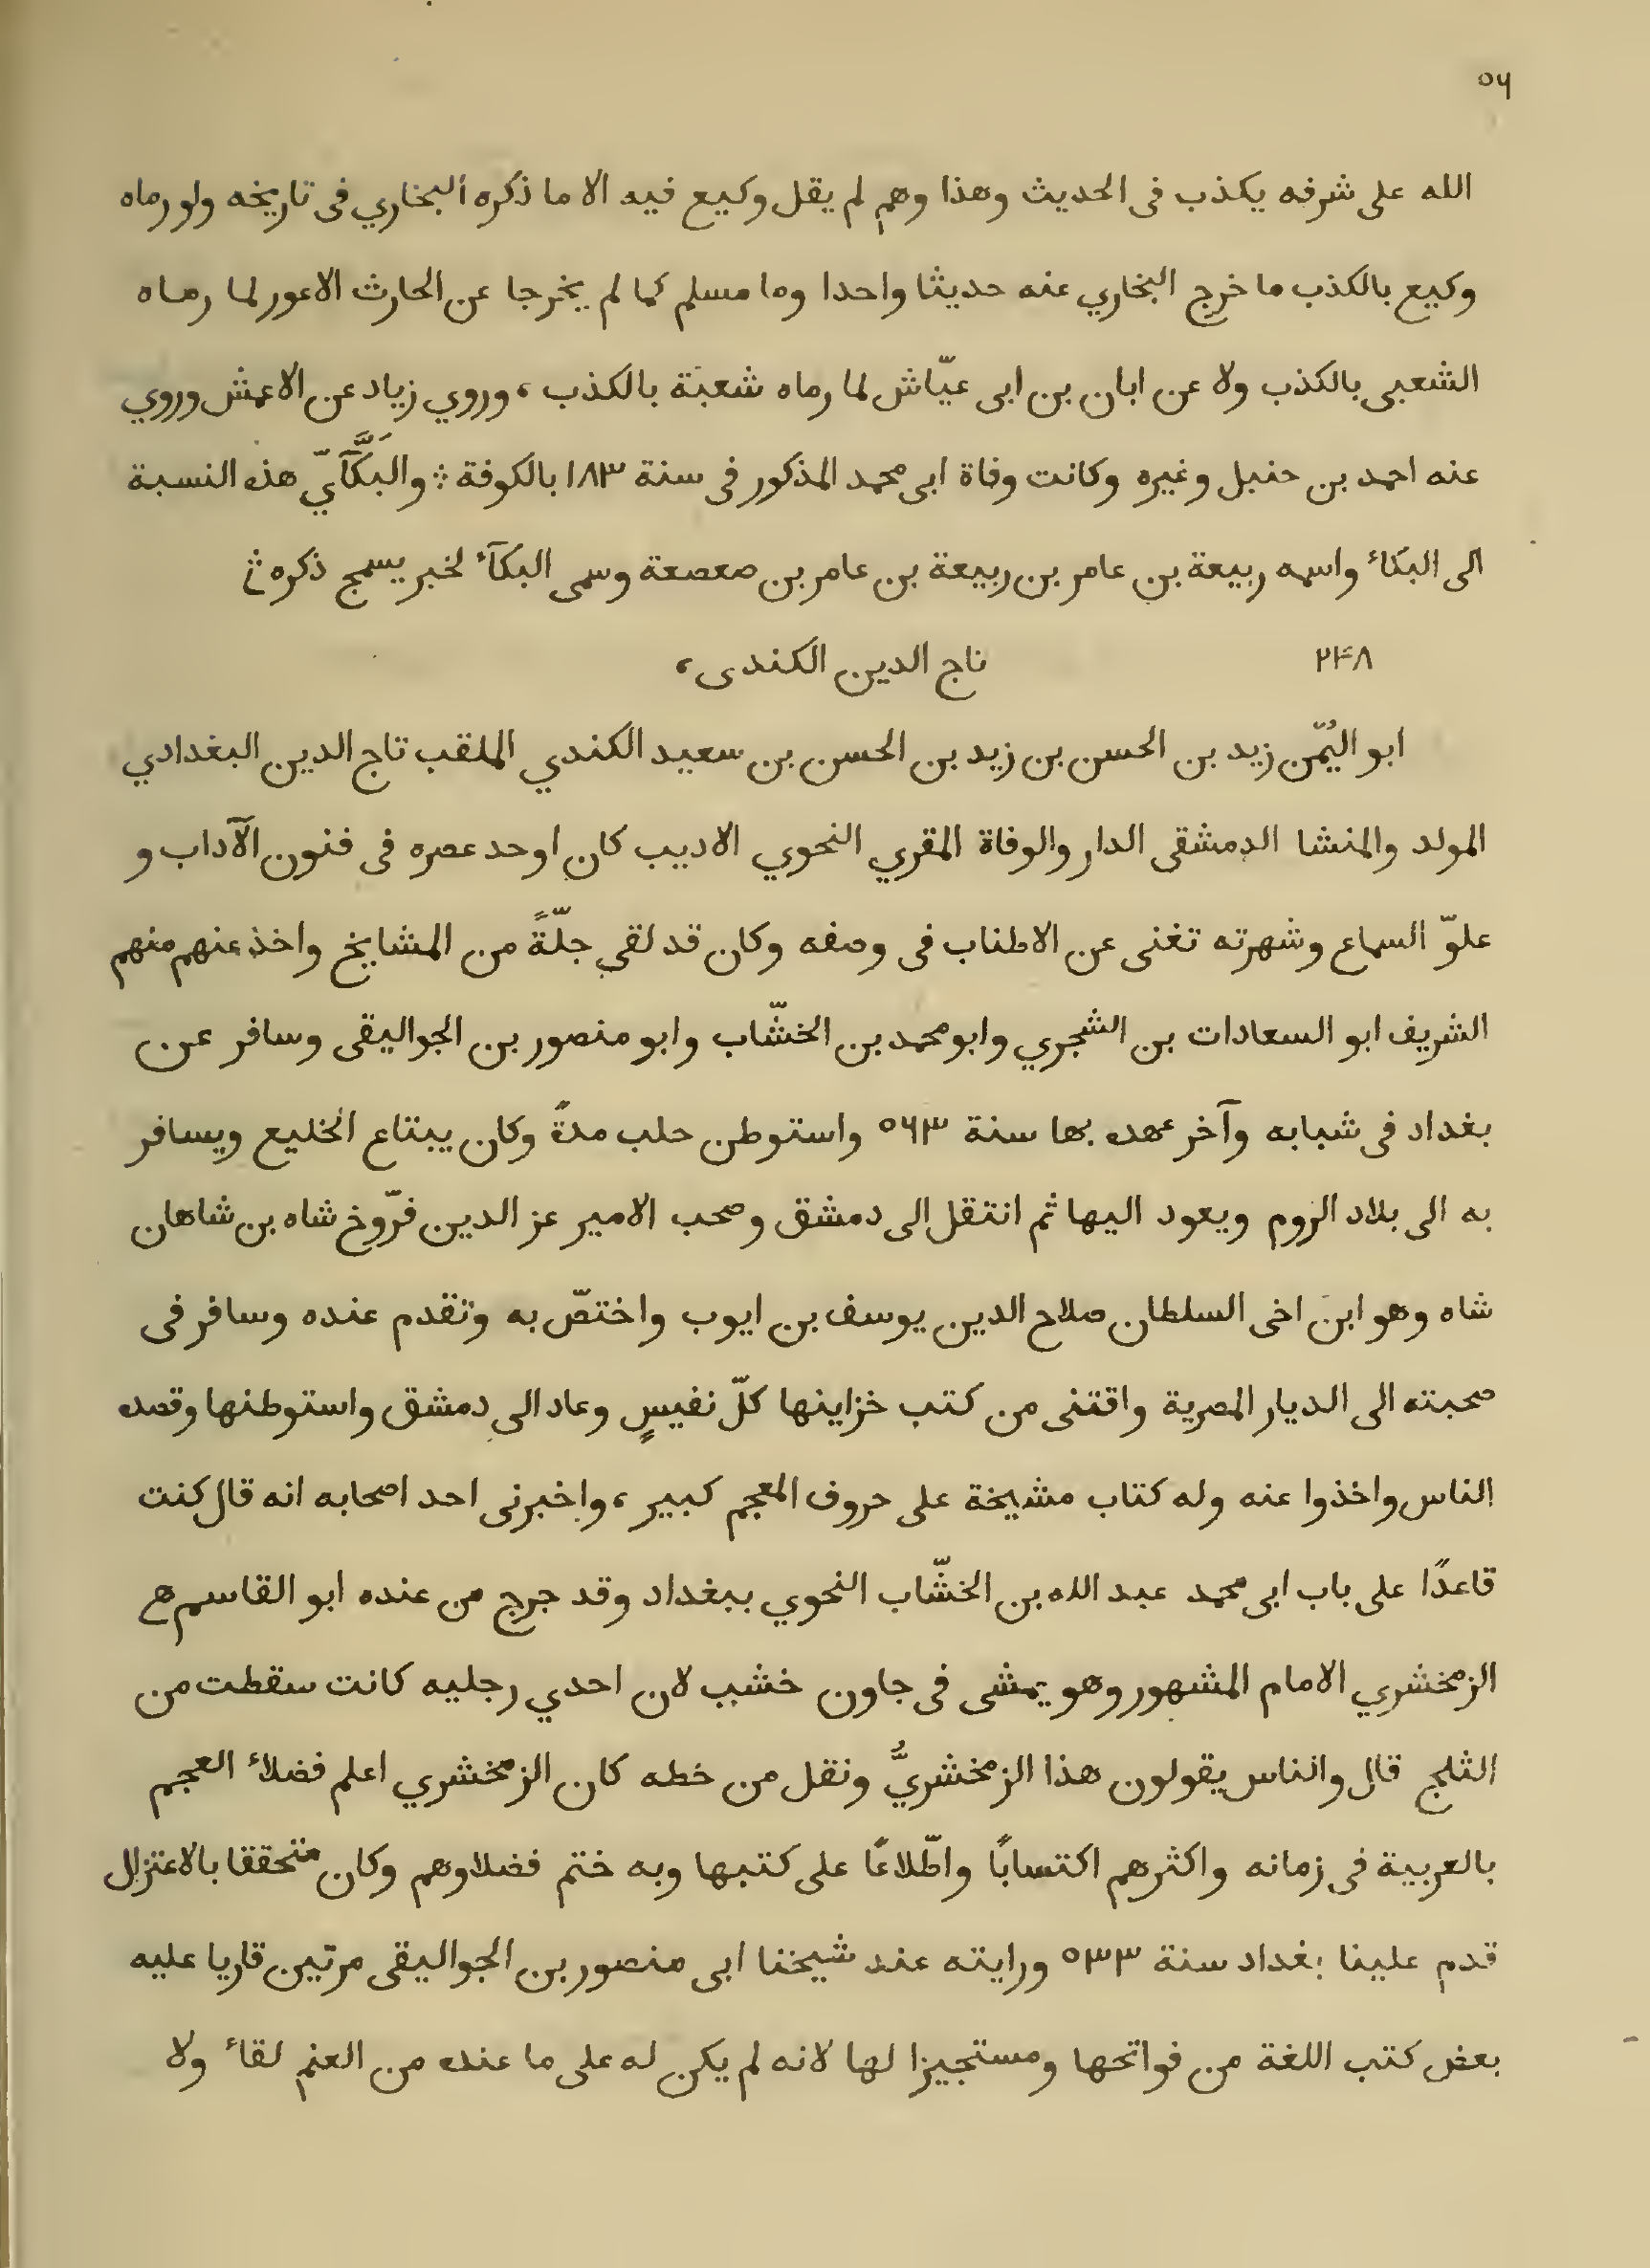 ٥٦
الله على شرفه يكذب فى الحديث وهذا وهم لم يقل وكيع فيه الا ما ذكره البخاري فى تاريخه ولو رماه
وكيع بالكذب ما خرج البخاري عنه حديثا واحدا وما مسلم كما لم يخرجا عن الحارث الاعور لما رماه
الشعبى بالكذب ولا عن ابان بن ابى عيّاش لما رماه شعبة بالكذب، وروي زياد عن الاعمش وروي
عنه احمد بن حنبل وغيره وكانت وفاة ابى محمد المذكور فى سنة ١٨٣ بالكوفة ؛ والبَكَّآيّ هذه النسبة
الى البكاء واسمه ربيعة بن عامر بن ربيعة بن عامر بن صعصعة وسمى البكآء لخبر يسمج ذكره ؛
٢٤٨ تاج الدين الكندى،
ابو اليُمّن زيد بن الحسن بن زيد بن الحسن بن سعيد الكندي الملقب تاج الدين البغدادي
المولد والمنشا الدمشقى الدار والوفاة المقري النحوي الاديب كان اوحد عصره فى فنون الآداب و
علوّ السماع وشهرته تغنى عن الاطناب فى وصفه وكان قد لقي جلّةً من المشايخ واخذ عنهم منهم
الشريف ابو السعادات بن الشجري وابو محمد بن الخشّاب وابو منصور بن الجواليقى وسافر عن
بغداد فى شبابه وآخر عهده بها سنة ٥٦٣ واستوطن حلب مدةً وكان يبتاع الخليع ويسافر
به الى بلاد الروم ويعود اليها ثم انتقل الى دمشق وصحب الامير عز الدين فرّوخ شاه بن شاهان
شاه وهو ابن اخى السلطان صلاح الدين يوسف بن ايوب واختصّ به وتقدم عنده وسافر فى
صحبته الى الديار المصرية واقتنى من كتب خزاينها كلّ نفيسٍ وعاد الى دمشق واستوطنها وقصده
الناس واخذوا عنه وله كتاب مشيخة على حروف المعجم كبير، واخبرنى احد اصحابه انه قال كنت
قاعدًا على باب ابى محمد عبد الله بن الخشّاب النحوي ببغداد وقد جرج من عنده ابو القاسم
الزمخشري الامام المشهور وهو يمشى فى جاون خشب لان احدي رجليه كانت سقطت من
الثلج قال والناس يقولون هذا الزمخشريُّ ونقل من خطه كان الزمخشري اعلم فضلاء العجم
بالعربية فى زمانه واكثرهم اكتسابًا واطّلاعًا على كتبها وبه ختم فضلاوهم وكان متحققا بالاعتزال
قدم علينا بغداد سنة ٥٣٣ ورايته عند شيخنا ابى منصور بن الجواليقى مرتين قاريا عليه
بعض كتب اللغة من فواتحها ومستجيزا لها لانه لم يكن له على ما عنده من العنم لقاء ولا